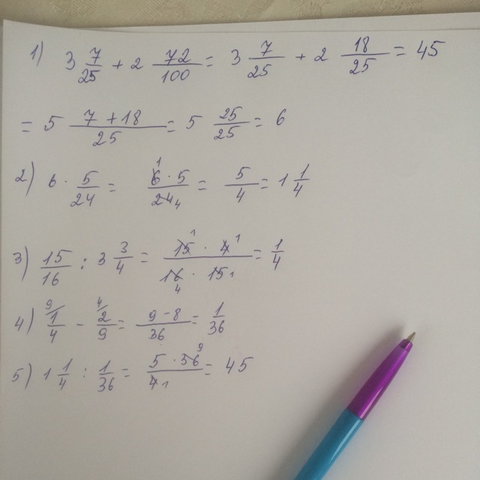 1) 3 7/25 + 2 72/100 = 3 7/25 + 2 18/25 = 45
= 5 (7 + 18)/25 = 5 25/25 = 6
2) 6 · 5/24 = (6 · 5)/24 = 5/4 = 1 1/4
3) 15/16 : 3 3/4 = (15 · 4)/(16 · 15) = 1/4
4) 1/4 - 2/9 = (9 - 8)/36 = 1/36
5) 1 1/4 : 1/36 = (5 · 36)/4 = 45